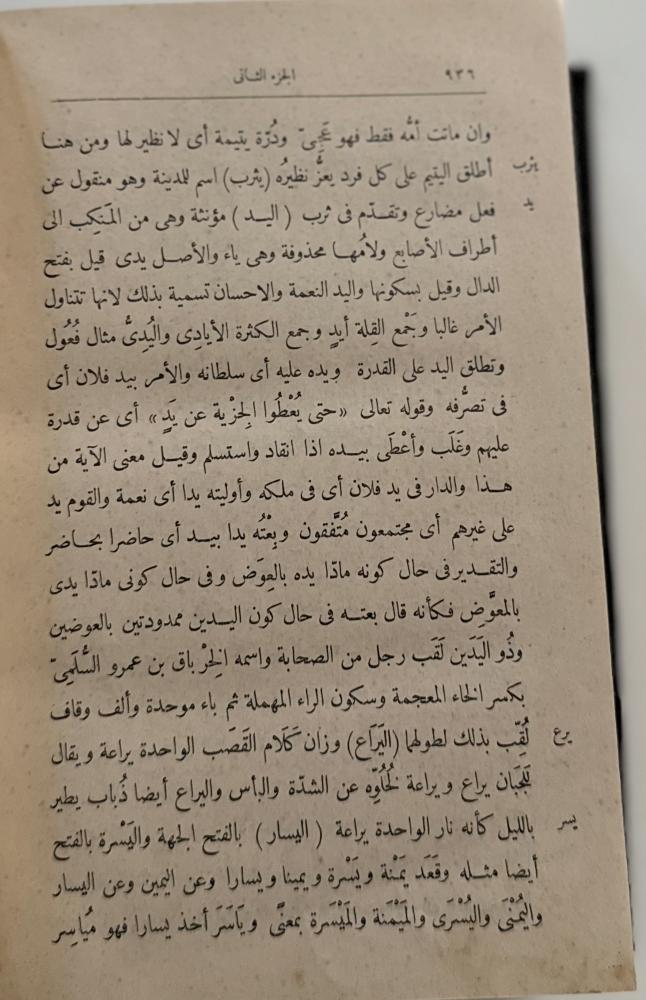 ٩٣٦
الجزء الثانى
وان ماتت أمُّه فقط فهو عَجِىّ ودُرّة يتيمة أى لا نظير لها ومن هنا
أطلق اليتيم على كل فرد يعزُّ نظيرُه (يثرب) اسم للمدينة وهو منقول عن
يثرب
فعل مضارع وتقدّم فى ثرب (اليد) مؤنثة وهى من المَنكِب الى
يد
أطراف الأصابع ولامُها محذوفة وهى ياء والأصل يدى قيل بفتح
الدال وقيل بسكونها واليد النعمة والاحسان تسمية بذلك لانها تتناول
الأمر غالبا وجَمْع القِلة أيدٍ وجمع الكثرة الأيادِى واليُدِىُّ مثال فُعُول
وتطلق اليد على القدرة ويده عليه أى سلطانه والأمر بيد فلان أى
فى تصرُّفه وقوله تعالى «حتى يُعْطُوا الجِزْية عن يَدٍ» أى عن قدرة
عليهم وغَلَب وأعْطَى بيده اذا انقاد واستسلم وقيل معنى الآية من
هذا والدار فى يد فلان أى فى ملكه وأوليته يدا أى نعمة والقوم يد
على غيرهم أى مجتمعون مُتَّفقون وبِعْتُه يدا بيد أى حاضرا بحاضر
والتقدير فى حال كونه مادّا يده بالعِوَض وفى حال كونى مادّا يدى
بالمعوَّض فكأنه قال بعته فى حال كون اليدين ممدودتين بالعوضين
وذُو اليَدَين لَقَب رجل من الصحابة واسمه الخِرْباق بن عمرو السُّلَمِىّ
بكسر الخاء المعجمة وسكون الراء المهملة ثم باء موحدة وألف وقاف
لُقِّب بذلك لطولهما (اليَرَاع) وزان كَلَام القَصَب الواحدة يراعة ويقال
يرع
للجَبَان يراع ويراعة لخُلُوّه عن الشدّة والبأس واليراع أيضا ذُباب يطير
بالليل كأنه نار الواحدة يراعة (اليسار) بالفتح الجهة واليَسْرة بالفتح
يسر
أيضا مثله وقَعَد يَمْنة ويَسْرة ويمينا ويسارا وعن اليمين وعن اليسار
واليُمْنَى واليُسْرَى والمَيْمَنة والمَيْسَرة بمعنًى ويَاسَرَ أخذ يسارا فهو مُياسِر